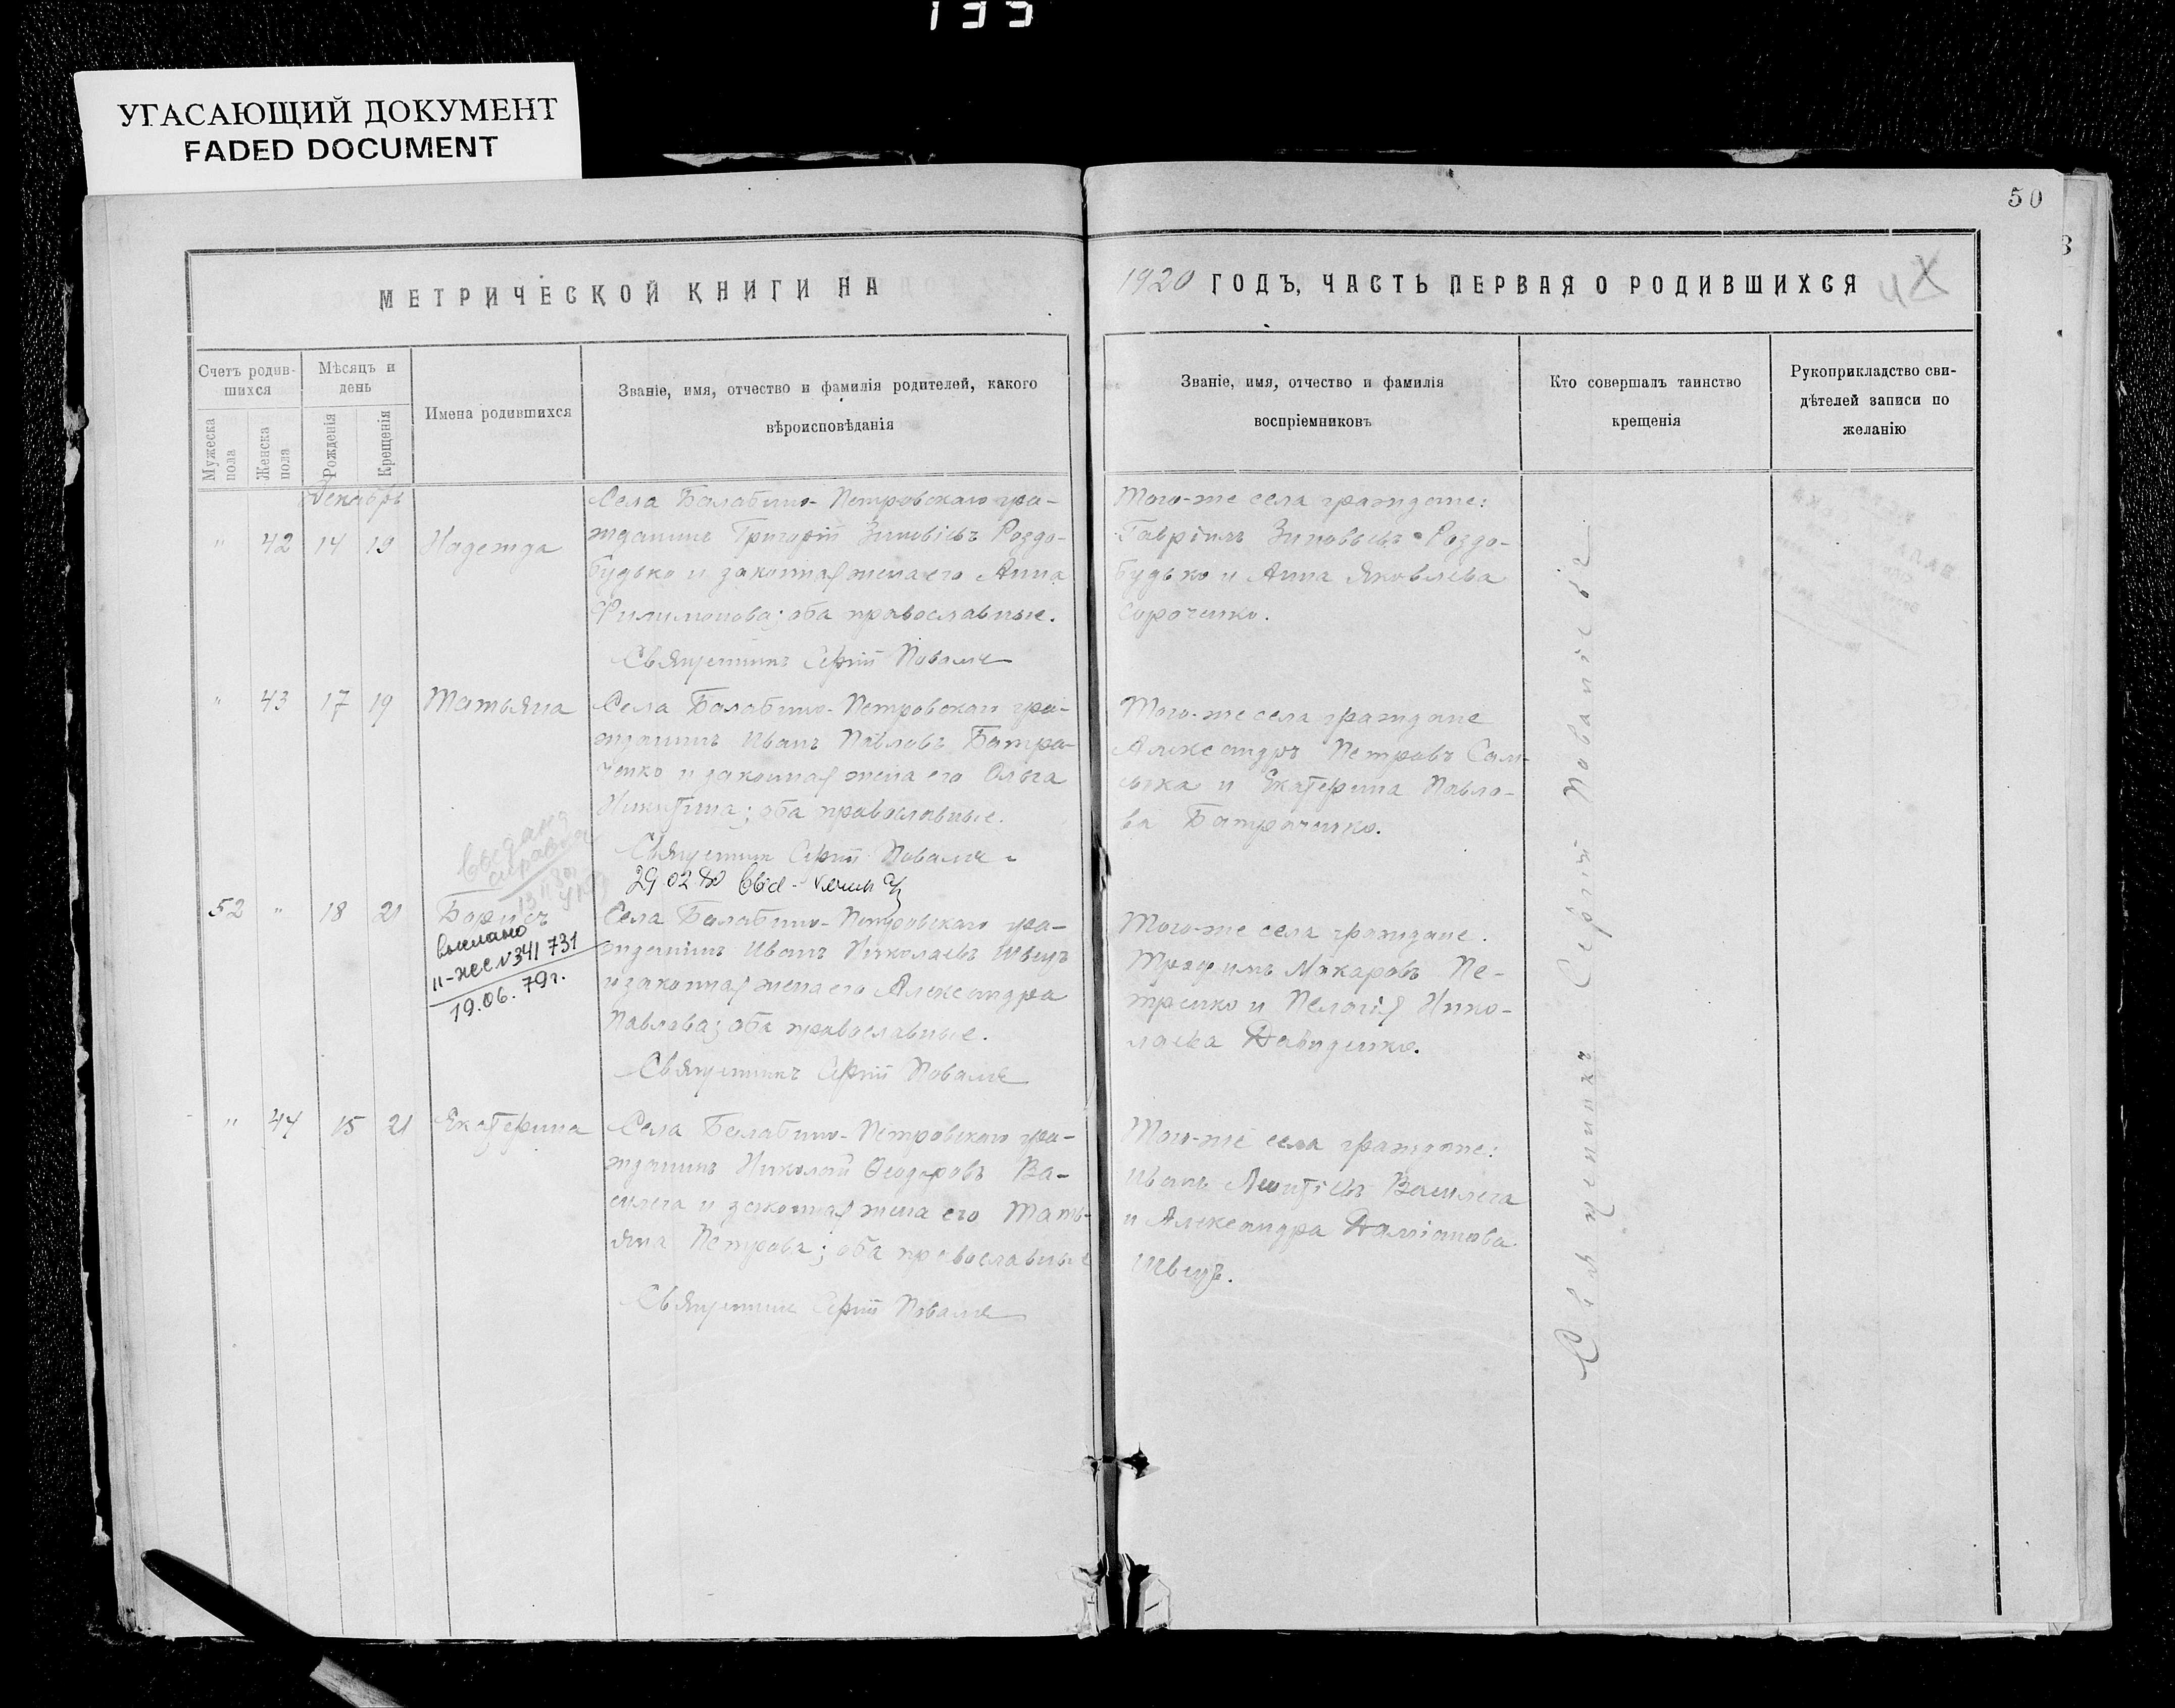 133
УГАСАЮЩИЙ ДОКУМЕНТ
FADED DOCUMENT
50
МЕТРИЧЕСКОЙ КНИГИ НА
1920 ГОДЪ, ЧАСТЬ ПЕРВАЯ О РОДИВШИХСЯ
Счетъ родив-
шихся
Мѣсяцъ и
день
Имена родившихся
Званіе, имя, отчество и фамилія родителей, какого
вѣроисповѣданія
Мужеска
пола
Женска
пола
Рожденія
Крещенія
Званіе, имя, отчество и фамилія
воспріемниковъ
Кто совершалъ таинство
крещенія
Рукоприкладство сви-
дѣтелей записи по
желанію
Декабрь
" 42 14 19 Надежда
Села Балабино-Петровскаго гра-
жданинъ Григорій Зиновіевъ Роздо-
будько и законная жена его Анна
Филимонова; оба православные.
Священникъ Сергій
Того-же села граждане:
Гавріилъ Зиновьевъ Роздо-
будько и Анна Яковлева
Сороченко.
" 43 17 19 Татьяна
Села Балабино-Петровскаго гра-
жданинъ Иванъ Павловъ Батра-
ченко и законная жена его Ольга
Никитина; оба православные.
Священникъ Сергій
29 02 80
Того-же села граждане
Александръ Петровъ
и Екатерина Павло-
ва Батраченко.
Выдана
справка
52 " 18 21 Борисъ
выслано
II-ЖС №341731
19.06.79г.
Села Балабино-Петровскаго гра-
жданинъ Иванъ Николаевъ Швецъ
и законная жена его Александра
Павлова; оба православные.
Священникъ Сергій
Того-же села граждане:
Трофимъ Макаровъ Пе-
тренко и Пелагія Нико-
лаева Давиденко.
" 44 15 21 Екатерина
Села Балабино-Петровскаго гра-
жданинъ Николай Ѳеодоровъ Ва-
силега и законная жена его Тать-
яна Петрова; оба православные
Священникъ Сергій
Того-же села граждане:
Иванъ Леонтіевъ Василега
и Александра Даміанова
Швецъ.
Священникъ Сергій